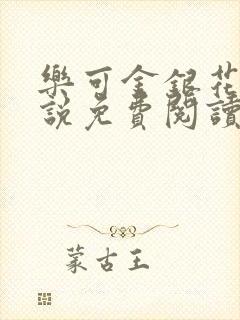 樂可金銀花
說免費閱讀
蒙古王